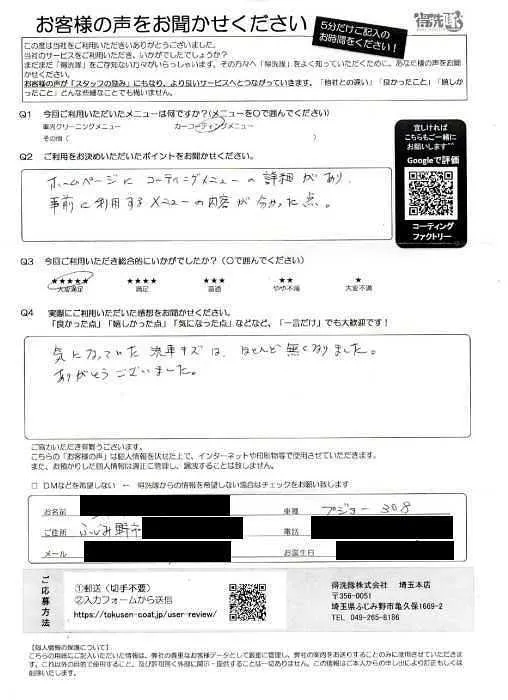 お客様の声をお聞かせください
5分だけご記入の
お時間をください！
得洗隊
この度は当社をご利用いただきありがとうございました。
当社のサービスをご利用いただき、いかがでしたでしょうか？
まだまだ「得洗隊」をご存じない方々がいらっしゃいます。その方々へ「得洗隊」をよく知っていただくために、あなた様の声をお聞かせください。
お客様の声が「スタッフの励み」にもなり、より良いサービスへとつながっていきます。「他社との違い」「良かったこと」「嬉しかったこと」どんな些細なことでも構いません。
Q1 今回ご利用いただいたメニューは何ですか？(メニューを〇で囲んでください)
車内クリーニングメニュー カーコーティングメニュー
その他（ ）
Q2 ご利用をお決めいただいたポイントをお聞かせください。
ホームページに コーティングメニューの詳細があり、
事前に利用するメニューの内容が分かった点。
宜しければ
こちらもご一緒に
お願いします^^
Googleで評価
コーティング
ファクトリー
Q3 今回ご利用いただき総合的にいかがでしたか？（〇で囲んでください）
★★★★★ ★★★★ ★★★ ★★ ★
大変満足 満足 普通 やや不満 大変不満
Q4 実際にご利用いただいた感想をお聞かせください。
「良かった点」「嬉しかった点」「気になった点」などなど、「一言だけ」でも大歓迎です！
気になっていた洗車キズは、ほとんど無くなりました。
ありがとうございました。
ご協力いただき有難うございます。
こちらの「お客様の声」は個人情報を伏せた上で、インターネットや印刷物等で使用させていただきます。
また、お預かりした個人情報は適正に管理し、漏洩することは致しません。
□ DMなどを希望しない ← 得洗隊からの情報を希望しない場合はチェックをお願い致します
お名前 車種 プジョー 308
ご住所 ふじみ野市 電話
メール お誕生日
ご応募方法
①郵送（切手不要）
②入力フォームから送信
https://tokusen-coat.jp/user-review/
得洗隊株式会社 埼玉本店
〒356-0051
埼玉県ふじみ野市亀久保1669-2
TEL 049-265-8186
【個人情報の保護について】
こちらの用紙にご記入いただいた情報は、弊社の貴重なお客様データとして厳重に管理し、弊社の案内をお送りすることのみに使用させていただきます。これ以外の目的で使用すること、及び許可無く外部に開示・提供することは一切ありません。この情報はご本人からの申し出により訂正もしくは削除いたします。